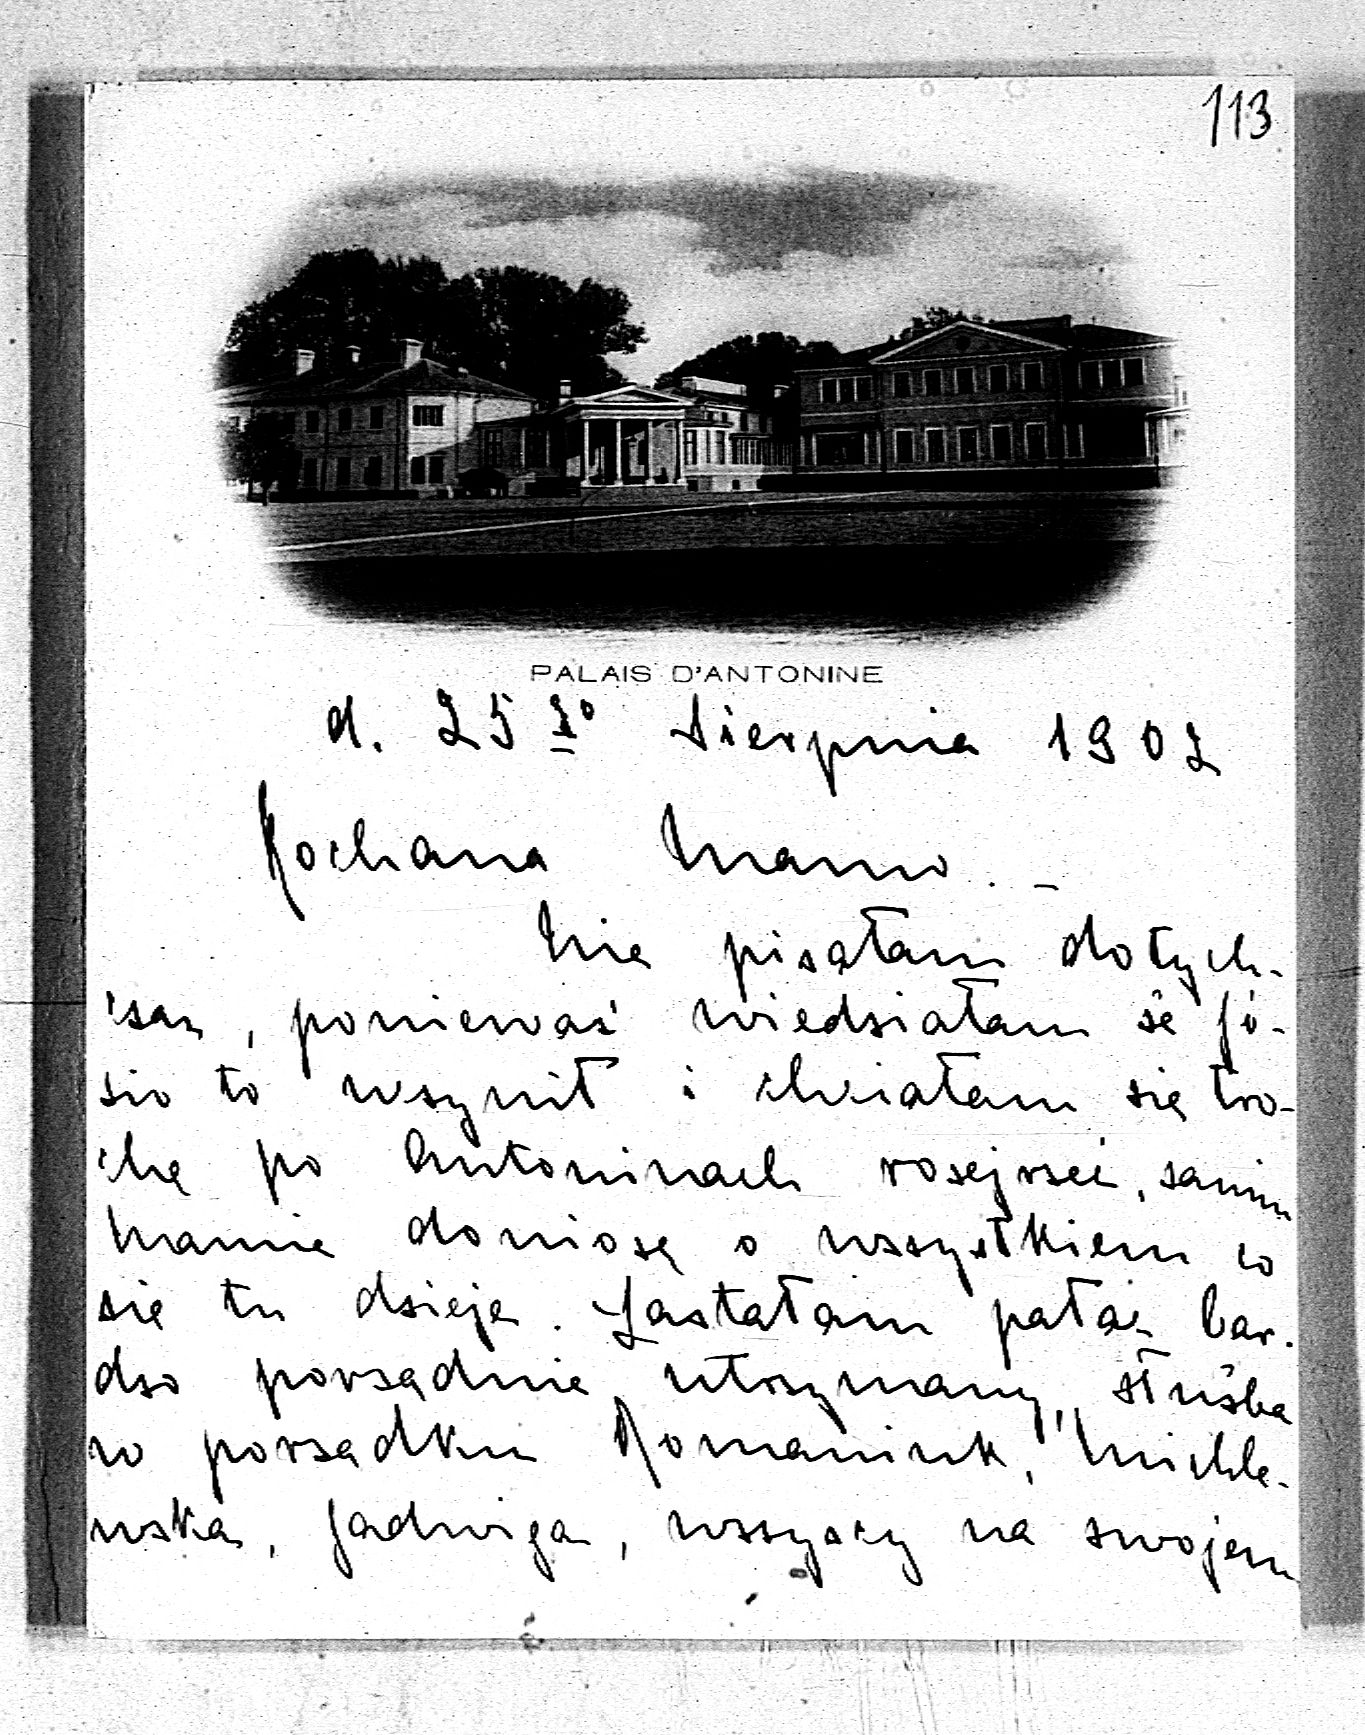 113
PALAIS D'ANTONINE
d. 25go Sierpnia 1902
Kochana Mamo. –
Nie pisałam dotych-
czas, ponieważ wiedziałam że Jó-
zio to uczynił i chciałam się tro-
chę po Antoninach rozejrzeć, zanim
Mamie doniosę o wszystkiem co
się tu dzieje. Zastałam pałac bar-
dzo porządnie utrzymany, służba
w porządku Romaniuk, Michle-
wska, Jadwiga, wszyscy na swojem